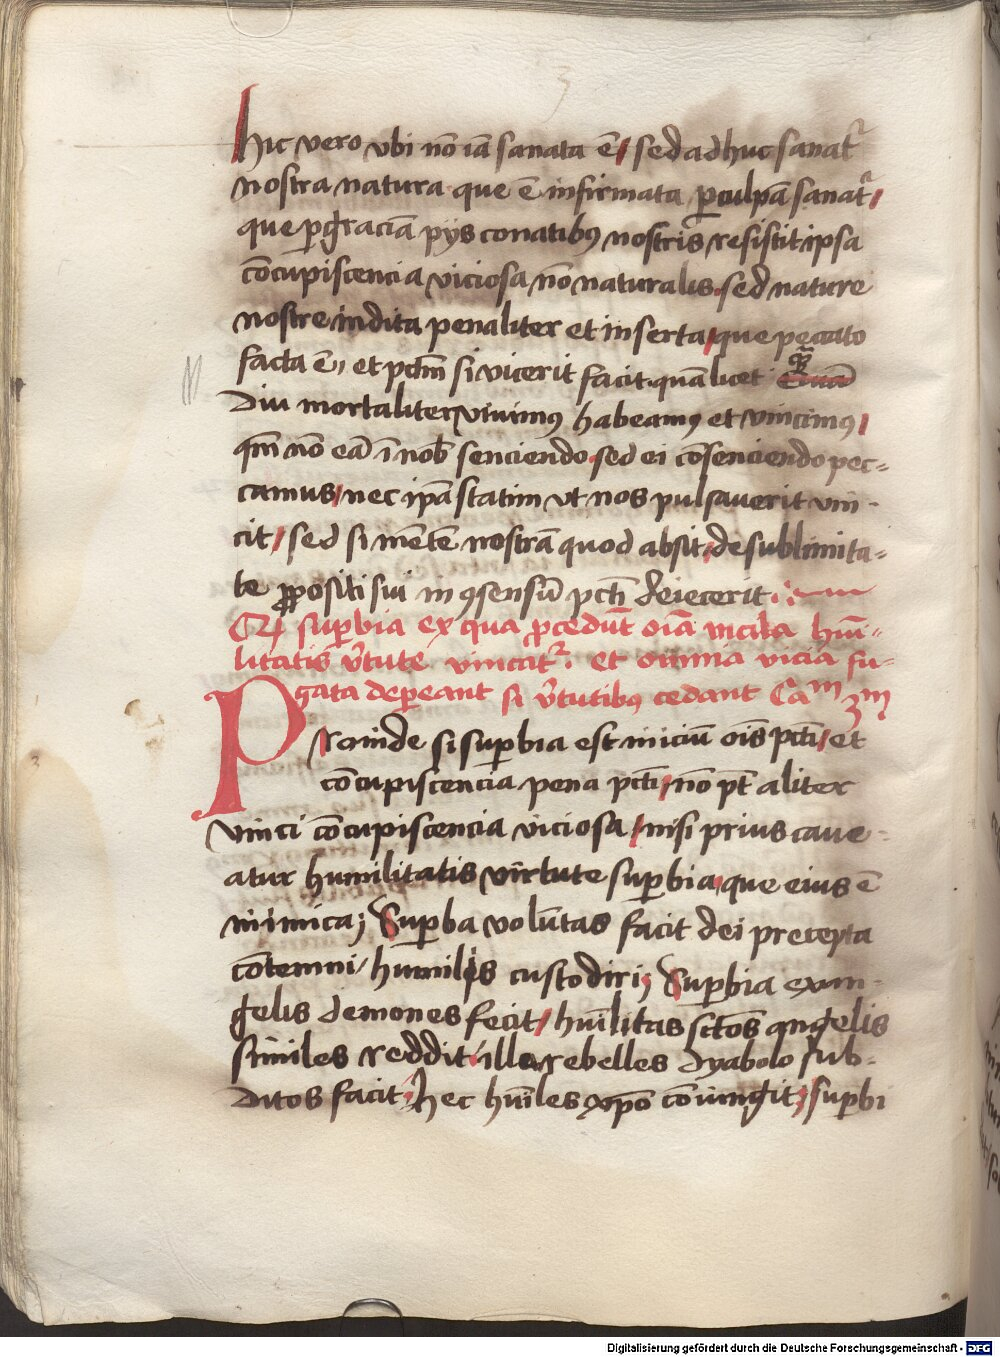 hic vero vbi nō iā sanata ē / sed adhuc sanat᷑
nostra natura que ē infirmata ꝑ culpā sanat᷑ /
que ꝑ graciā pijs conatibꝰ nostris resistit ipsa
cōcupiscencia viciosa nō naturalis sed nature
nostre indita penaliter et inserta / que peccato
facta ē , et pctm̄ si vicerit facit quā licet
diu mortaliter viuimꝰ habeamꝰ et vincimꝰ /
qm̄ nō eā ī nob̄ senciendo sed ei cōsenciendo pec=
camus / nec ip̄a statim vt nos pulsauerit vin-
cit / sed si mētē nostrā quod absit / de sublimita=
te ꝓpositi sui in ꝯsensū pcti̅ deiecerit .
suꝑbia ex qua ꝓcedūt oīa mēba hūi=
litatis v̄tute vincat᷑ . et omnia vicia fu-
gata deꝑeant si v̄tutibꝰ cedant Caᵐ 3ᵐ
Proinde si suꝑbia est iniciū oīs pcti̅ / et
cōcupiscencia pena pcti̅ / nō pt̄ aliter
vinci cōcupiscencia viciosa / nisi prius caue-
atur humilitatis virtute suꝑbia , que eius ē
inimica ; Suꝑba volūtas facit dei precepta
cōtemni / humilis custodiri ; Suꝑbia ex an-
gelis demones fecit / hūilitas sctōs angelis
similes reddit / illa rebelles dyabolo sub-
ditos facit / hec hūiles xpō cōiungit ; suꝑbi
Digitalisierung gefördert durch die Deutsche Forschungsgemeinschaft - DFG